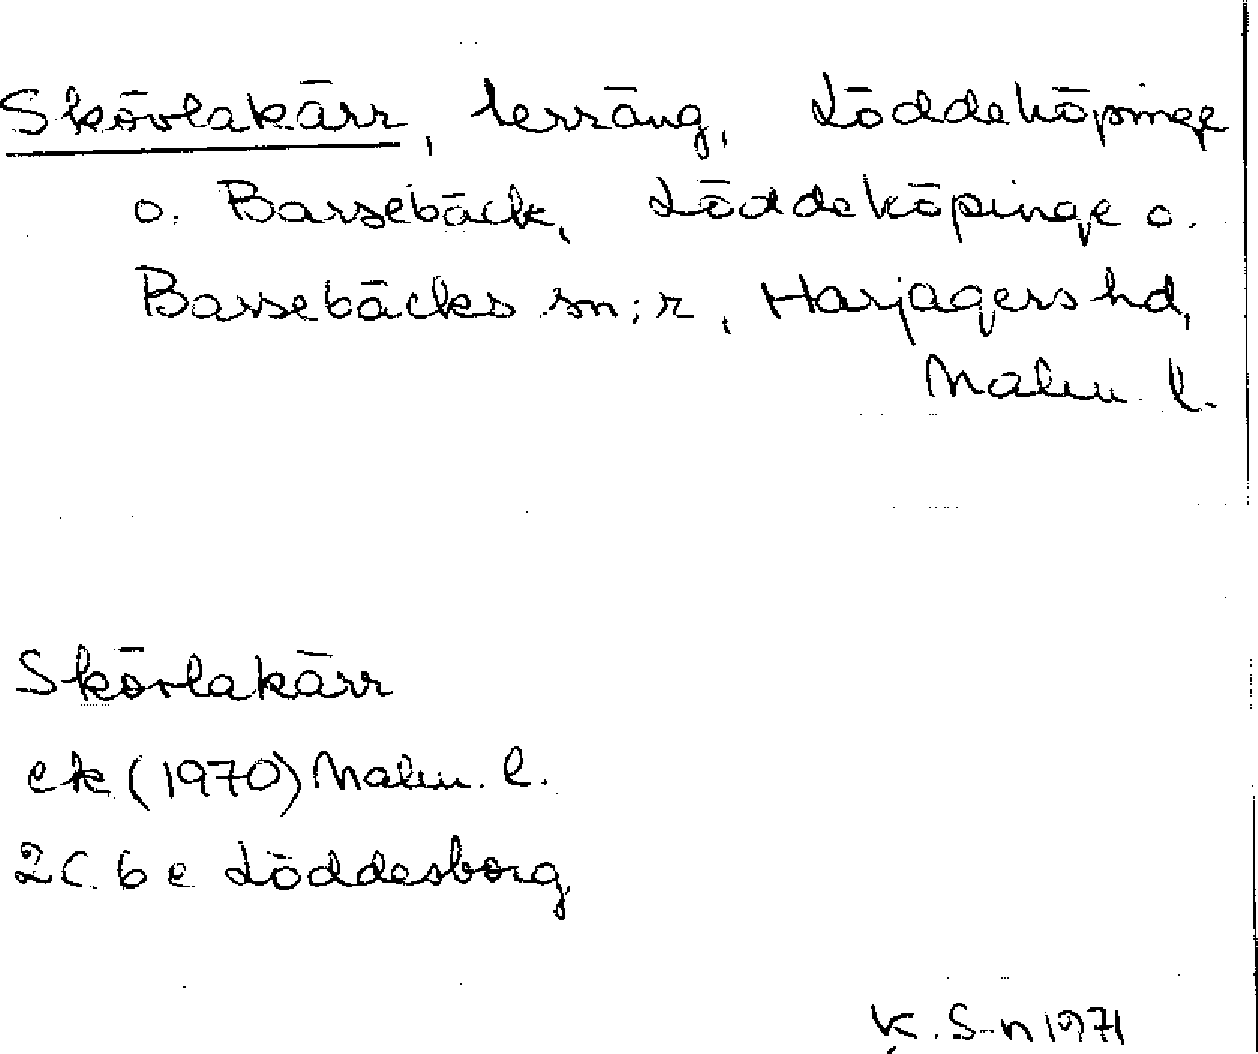 Skövlakärr, terräng, Löddeköpinge
o. Barsebäck, Löddeköpinge o.
Barsebäcks sn;r, Harjagers hd,
Malm. l.
Skövlakärr
ek (1970) Malm. l.
2C 6 e Löddesborg
K. S-n 1971